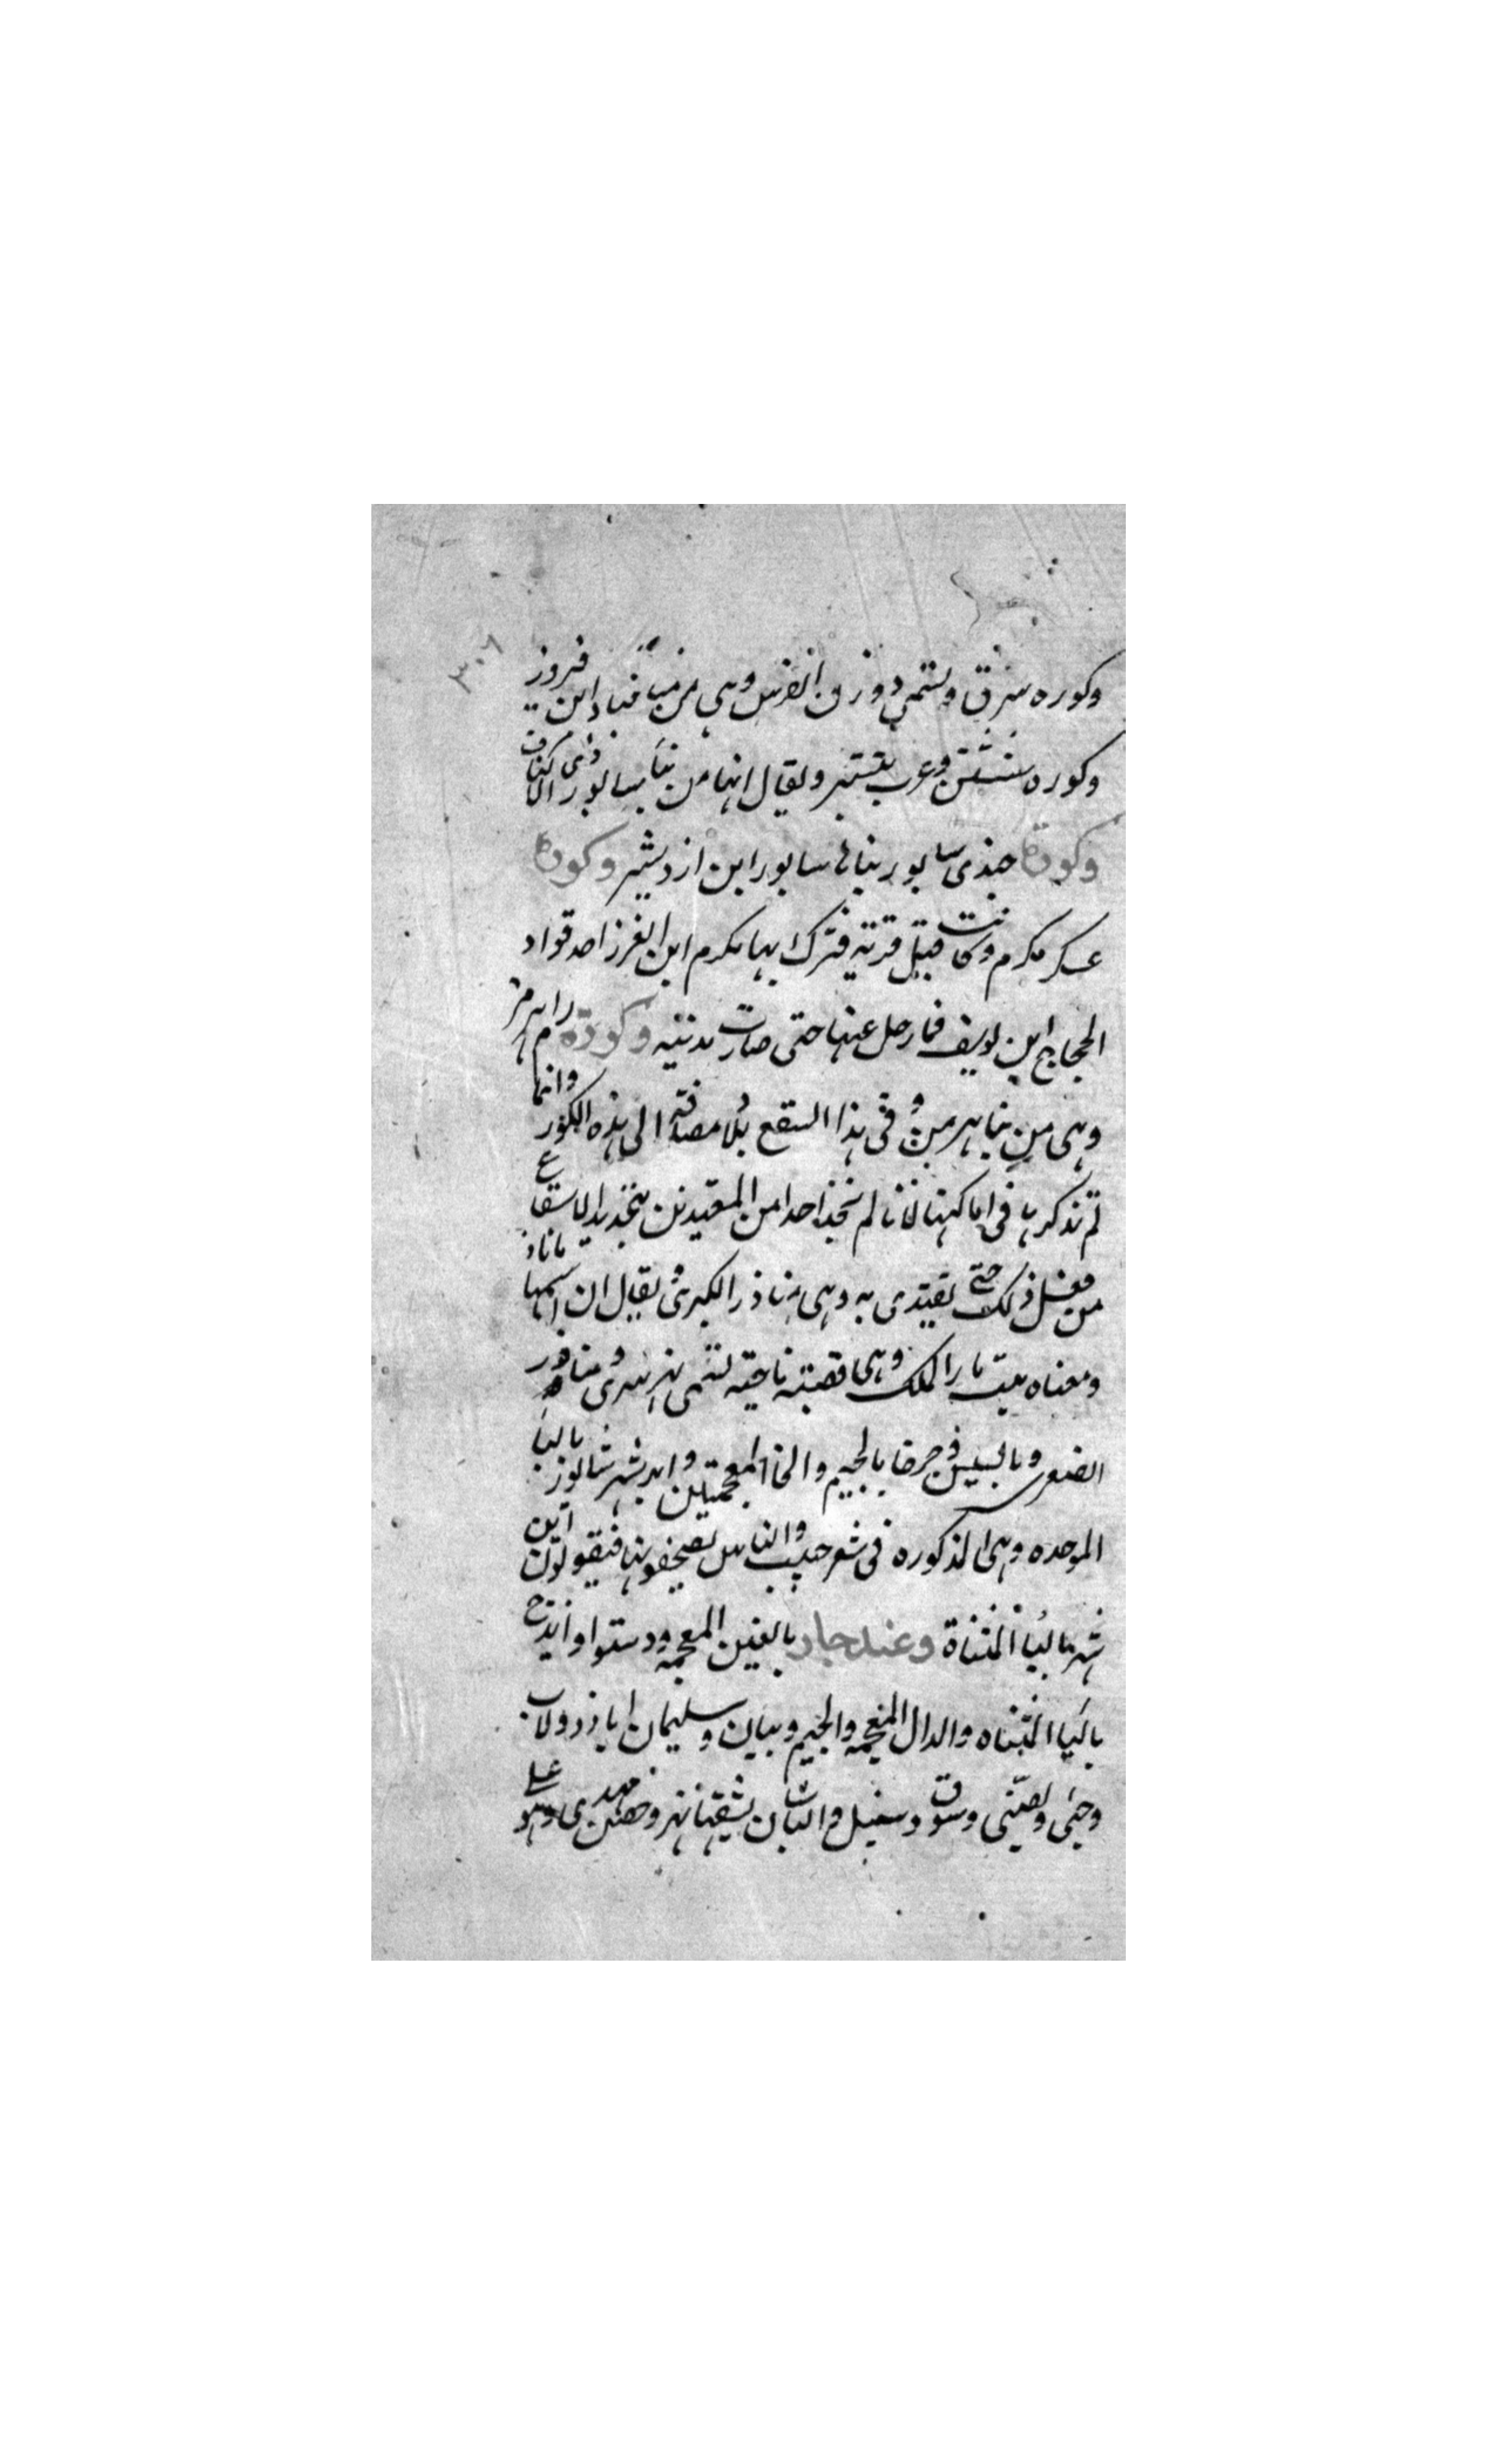 ٣٠٦
وكوره سرق وتسمى دورق الفرس وهى من بنا قباد ابن فيروز
وكوره ششتر وعرب بتستر ويقال انها من بنا سابور ذى الاكتاف
وكورة جندى سابور بناها سابور ابن ازدشير وكورة
عسكر مكرم وكانت قبل قرية فترك بها مكرم ابن الفزر احد قواد
الحجاج ابن يوسف فما رحل عنها حتى صارت مدينه وكورة رامهرمز
وهى من بنا هرمز وفى هذا السقع بلاد مضافة الى هذه الكور وانما
لم نذكرها فى اماكنها لاننا لم نجد احدا من المقيدين بتحديد الاسقاع
من فعل ذلك حتى نقتدى به وهى مناذر الكبرى يقال ان اسمها ماناذر
ومعناه بيت نار الملك وهى قصبة ناحيه تسمى نهرتيرى ومناذر
الصغرى وبالسيس وجرخا بالجيم والخا المعجمتين وابرشهر شابور بالبا
الموحده وهى المذكوره فى شعر حبيب والناس يصحفونها فيقولون اين
شهر باليا المثناة وعندجار بالغين المعجمه ودستوا وايذج
باليا المثناه والدال المعجمه والجيم وبيان وسليمان اباذ ودولاب
وجبى وبصنى وسوق وسنبل والباسان يشقها نهر وحصن مهدى وهو على